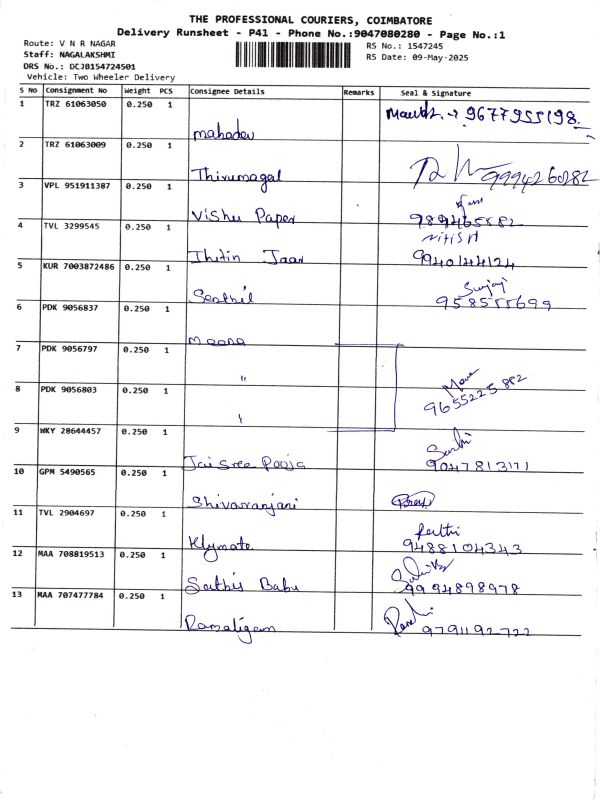 THE PROFESSIONAL COURIERS, COIMBATORE
Delivery Runsheet - P41 - Phone No.:9047080280 - Page No.:1
Route: V N R NAGAR
Staff: NAGALAKSHMI
DRS No.: DCJB154724501
Vehicle: Two Wheeler Delivery
RS No.: 1547245
RS Date: 09-May-2025
S No Consignment No Weight PCS Consignee Details Remarks Seal & Signature
1 TRZ 61063050 0.250 1 mahadev 9677955198
2 TRZ 61063009 0.250 1 Thirumagal 9994260282
3 VPL 951911387 0.250 1 Vishu Paper 989465582
4 TVL 3299545 0.250 1 Jhitin Jaar nitish 9940144124
5 KUR 7003872486 0.250 1 Senthil 9585555699
6 PDK 9056837 0.250 1 meena
7 PDK 9056797 0.250 1 "
8 PDK 9056803 0.250 1 " 9655225882
9 WKY 28644457 0.250 1 Jai Sree Pooja 9047813171
10 GPM 5490565 0.250 1 Shivarranjani
11 TVL 2904697 0.250 1 Klymate 9488104343
12 MAA 708819513 0.250 1 Sathis Babu 9994898978
13 MAA 707477784 0.250 1 Ramaligam 9791192722